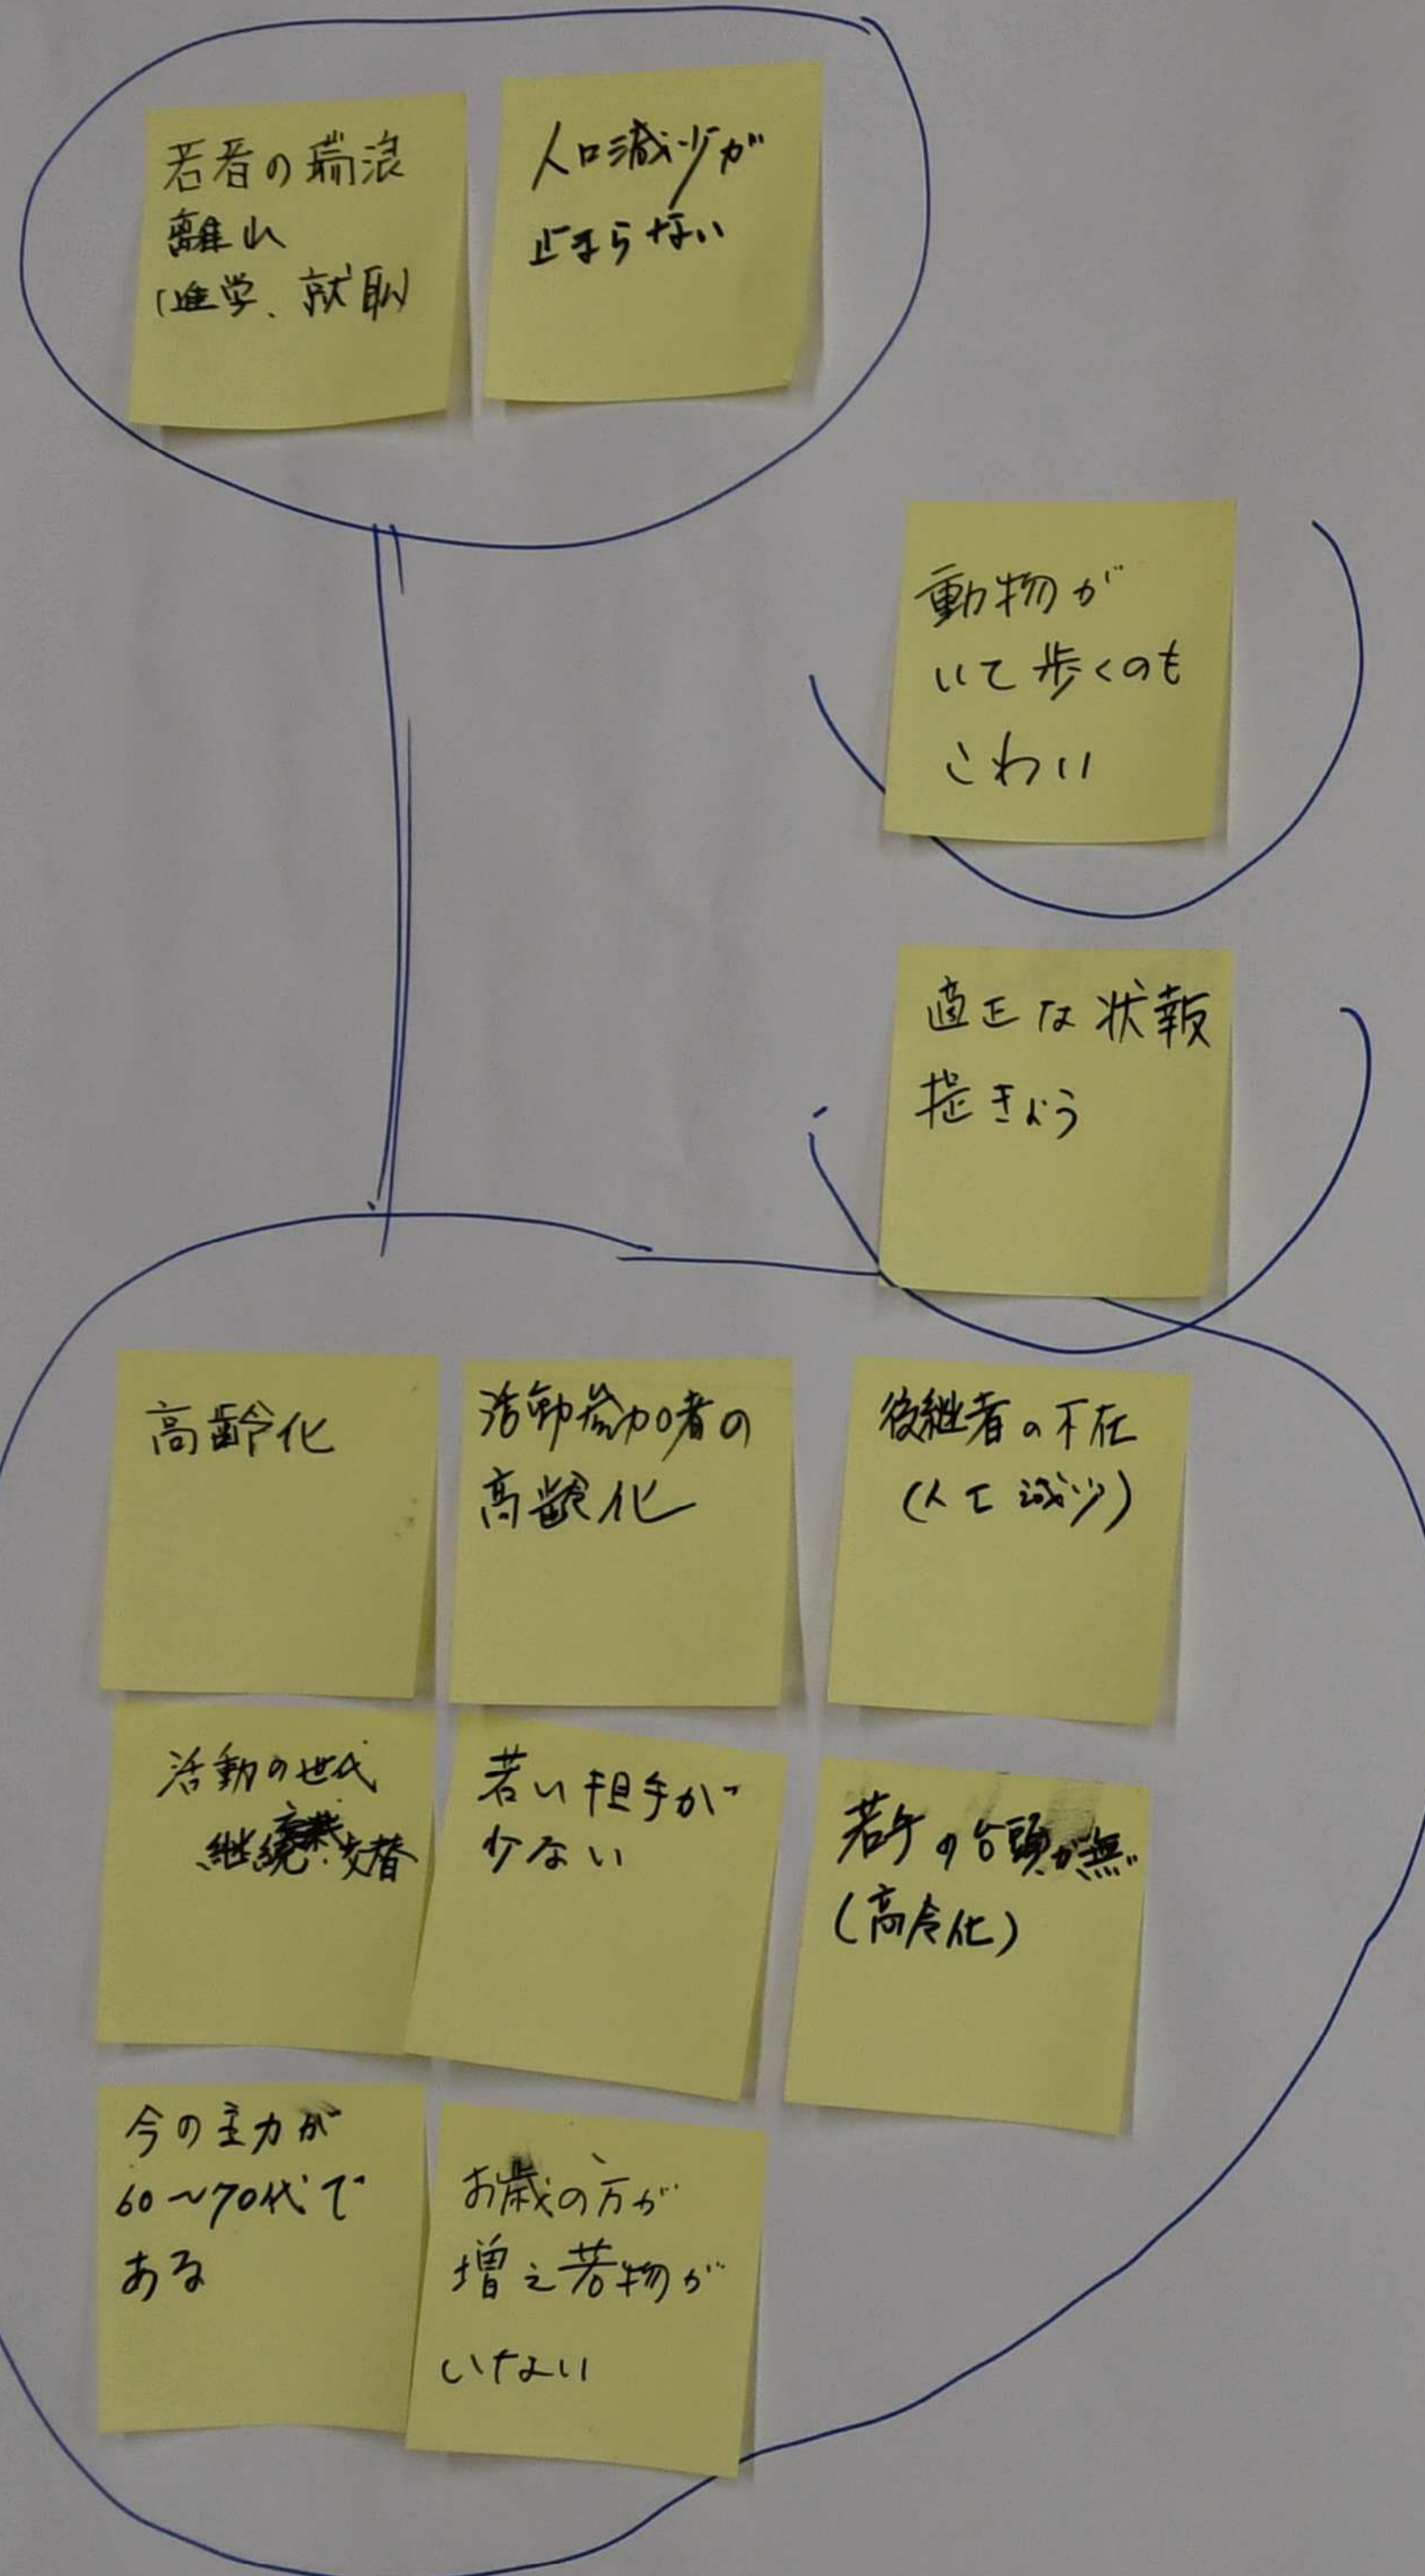 若者の瑞浪
離れ
(進学、就職)
人口減少が
止まらない
動物が
いて歩くのも
こわい
適正な状報
提きょう
高齢化
活動参加者の
高齢化
後継者の不在
(人工減少)
活動の世代
継続 交替
若い担手が
少ない
若手の台頭が無
(高令化)
今の主力が
60〜70代で
ある
お歳の方が
増え若物が
いない